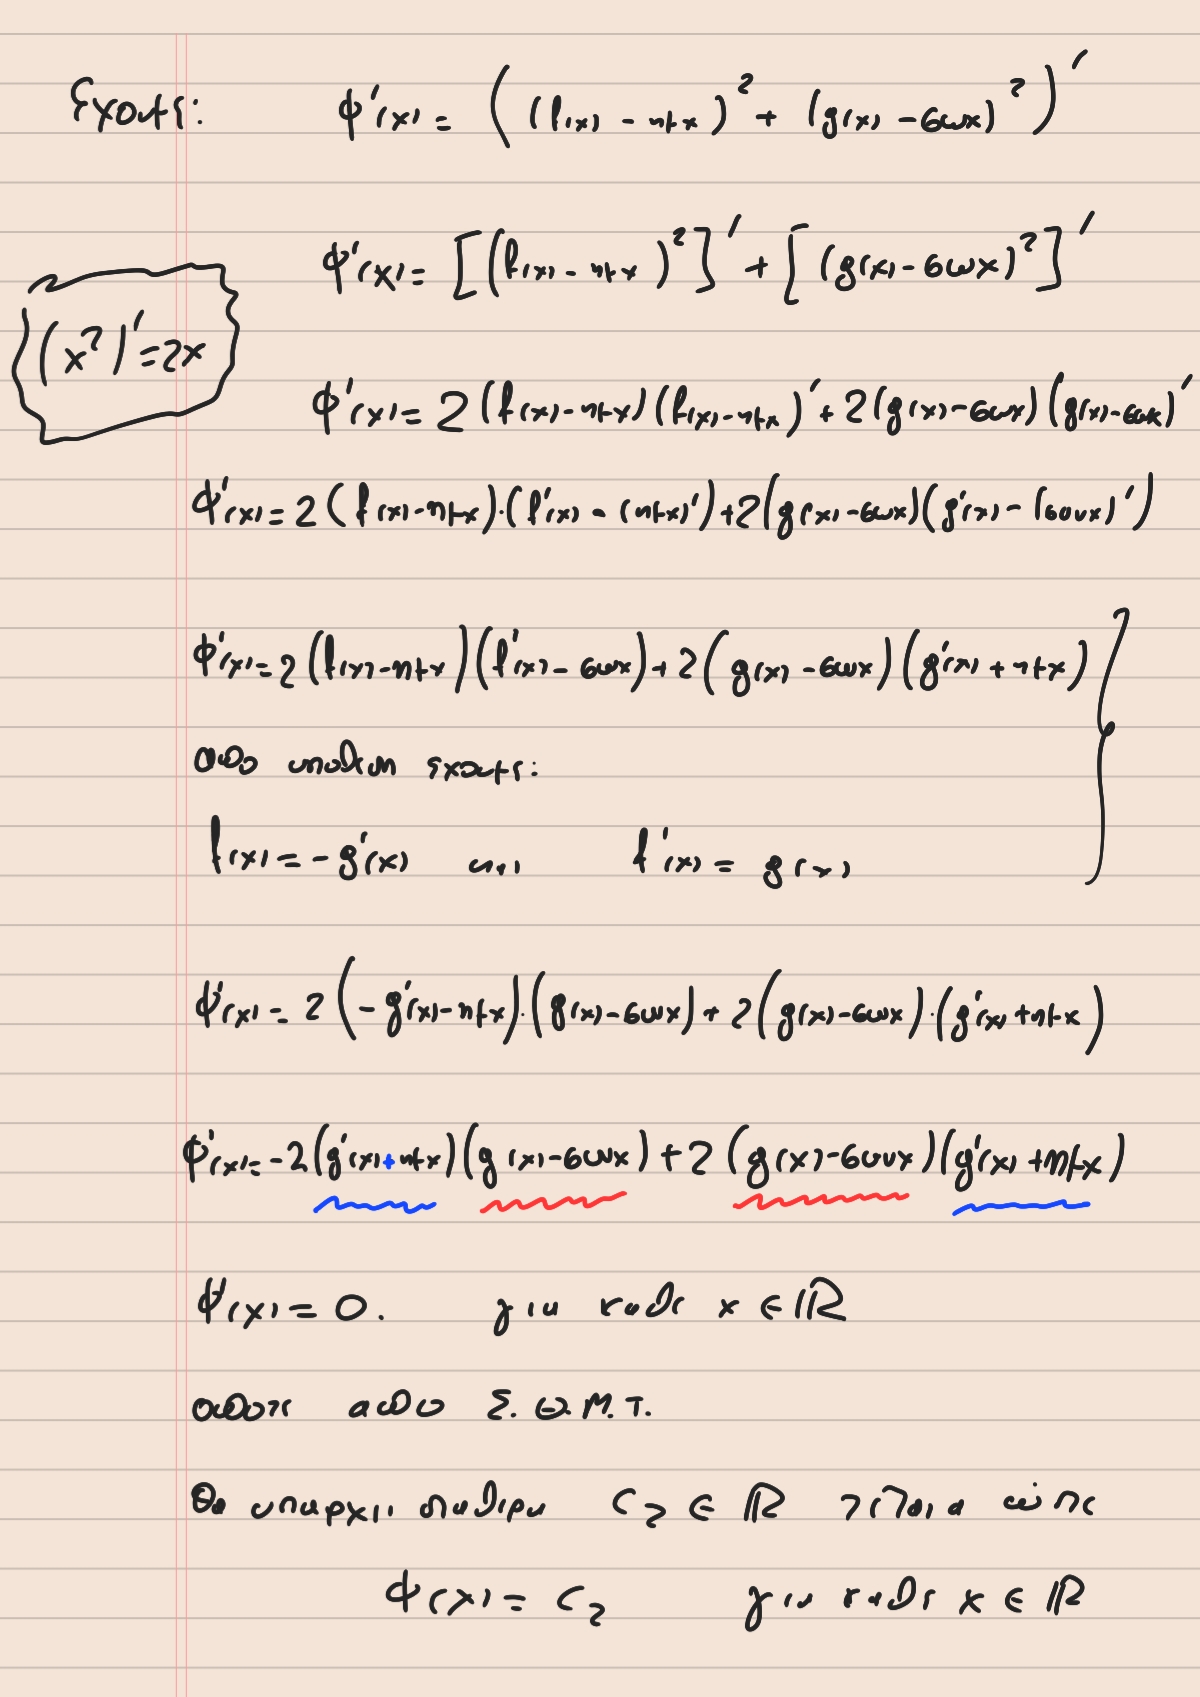 Έχουμε: φ'(x) = ((f(x) - ημx)² + (g(x) - συνx)²)'
φ'(x) = [(f(x) - ημx)²]' + [(g(x) - συνx)²]'
(x²)' = 2x
φ'(x) = 2(f(x) - ημx)(f(x) - ημx)' + 2(g(x) - συνx)(g(x) - συνx)'
φ'(x) = 2(f(x) - ημx)·(f'(x) - (ημx)') + 2(g(x) - συνx)(g'(x) - (συνx)')
φ'(x) = 2(f(x) - ημx)(f'(x) - συνx) + 2(g(x) - συνx)(g'(x) + ημx)
από υπόθεση έχουμε:
f(x) = -g'(x) και f'(x) = g(x)
φ'(x) = 2(-g'(x) - ημx)·(g(x) - συνx) + 2(g(x) - συνx)·(g'(x) + ημx)
φ'(x) = -2(g'(x) + ημx)(g(x) - συνx) + 2(g(x) - συνx)(g'(x) + ημx)
φ'(x) = 0. για κάθε x ∈ ℝ
οπότε από Σ.Θ.Μ.Τ.
Θα υπάρχει σταθερά c₂ ∈ ℝ τέτοια ώστε
φ(x) = c₂ για κάθε x ∈ ℝ